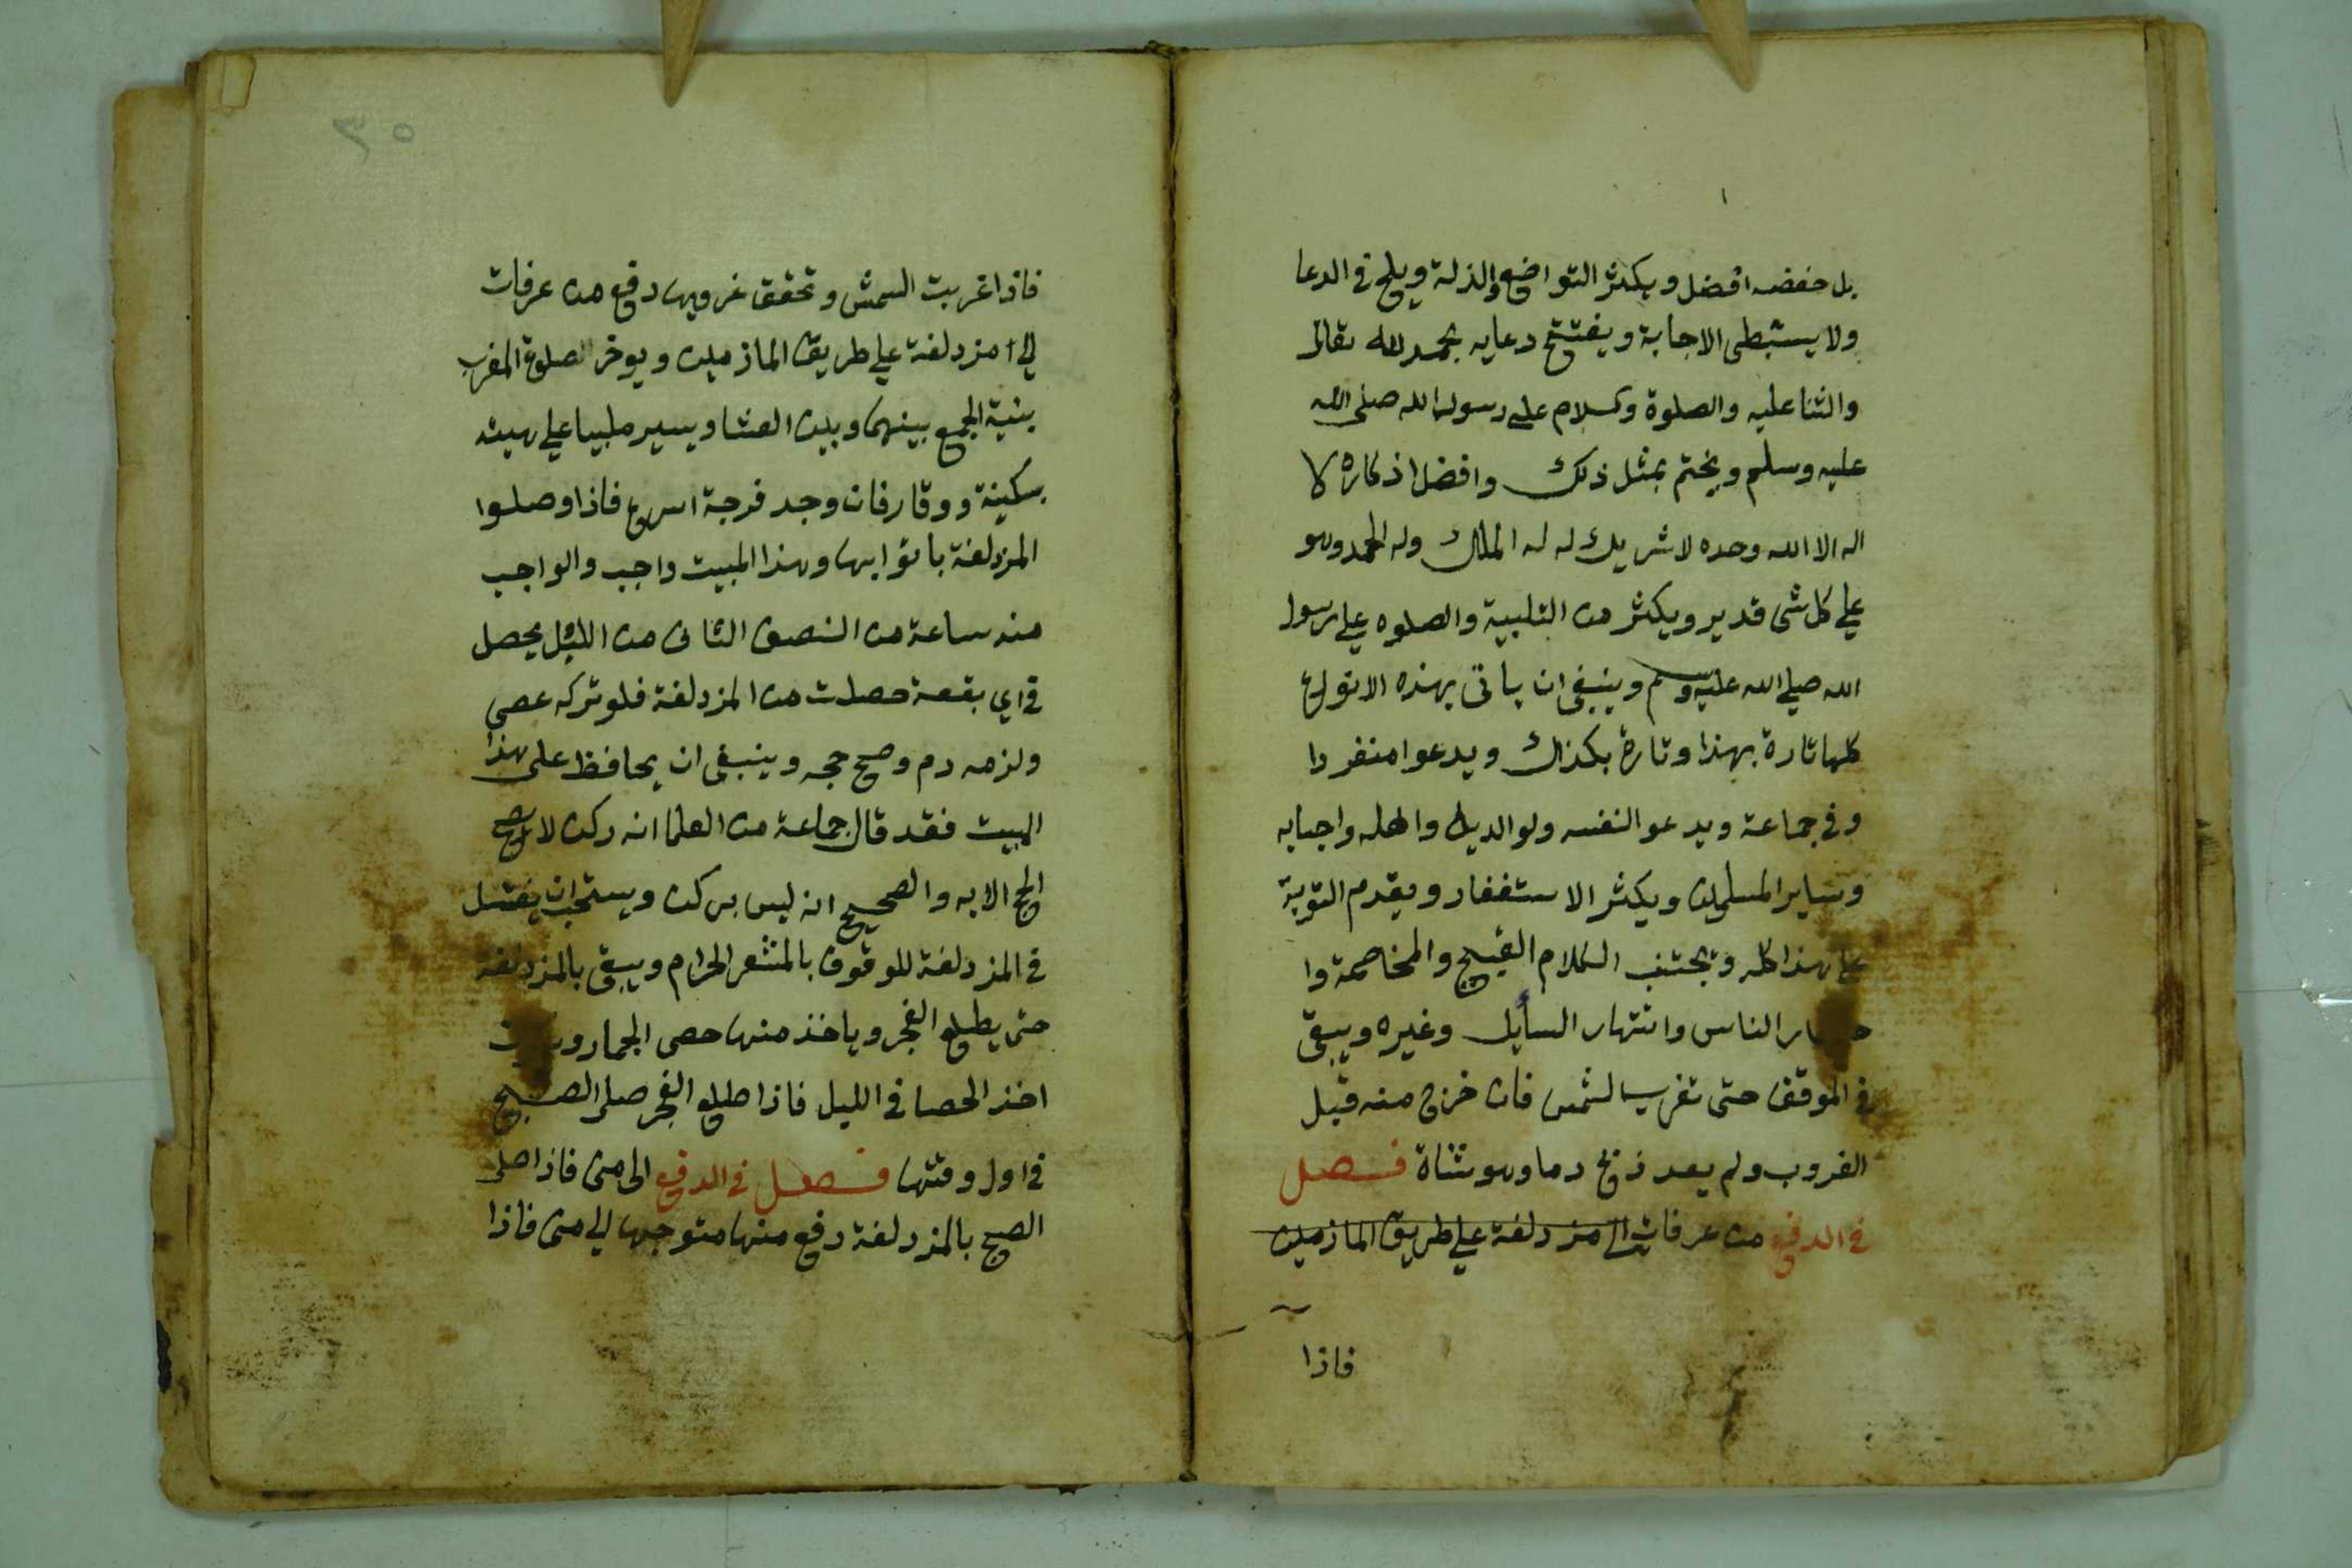 بل خفضه افضل ويكثر التواضع والذلة ويلح في الدعا
ولا يستبطى الاجابة ويفتتح دعايه بحمد لله تعالى
والثنا عليه والصلوة وسلام على رسول الله صلى الله
عليه وسلم ويختم بمثل ذلك وافضل اذكاره لا
اله الا الله وحده لا شريك له له الملك وله الحمد وهو
علي كل شى قدير ويكثر من التلبية والصلوه علي رسول
الله صلي الله عليه وسلم وينبغى ان ياتى بهذه الانواع
كلها تارة بهذا وتارة بكذاك ويدعوا منفردا
وفي جماعة ويدعو النفسه ولوالديه واهله واحبابه
وساير المسلمين ويكثر الاستغفار ويقدم التوبة
على هذا كله ويجتنب الكلام القبيح والمخاصمة وا
الناس وانتهار السأيل وغيره ويبقى
في الموقف حتى تغرب الشمس فان خرج منه قبل
الغروب ولم يعد ذبح دما وهو شاة فصل
في الدفع من عرفات الى مزدلفة علي طريق المازمين
فاذا
٣٥
فاذا غربت الشمش وتحقق غروبها دفع من عرفات
الي امزدلفة علي طريق المازمين ويوخر الصلوة المغرب
بنية الجمع بينهما وبين العشا ويسير ملبيا علي هيئه
بسكينة ووقار فان وجد فرجة اسرع فاذا وصلوا
المزدلفة باتوا بها وهذا المبيت واجب والواجب
منه ساعة من النصف الثانى من الليل يحصل
في اي بقعة حصلت من المزدلفة فلو تركه عصى
ولزمه دم وصح حجه وينبغى ان يحافظ على هذا
المبيت فقد قال جماعة من العلما انه ركن لا يصح
الحج الا به والصحيح انه ليس بركن ويستحب ان يغتسل
في المزدلفة للوقوف بالمشعر الحرام ويبقى بالمزدلفة
حتى يطلع الفجر وياخذ منها حصى الجمار
اخذ الحصا في الليل فاذا طلع الفجر صلى الصبح
في اول وقتها فصل في الدفع الى منى فاذا صلى
الصبح بالمزدلفة دفع منها متوجها الي منى فاذا